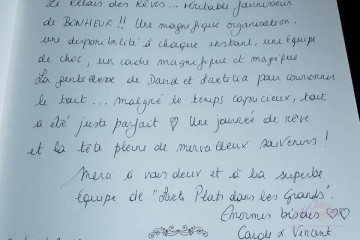 Le Relais des Rêves... véritable fournisseur
de BONHEUR !! Une magnifique organisation,
une disponibilité à chaque instant, une équipe
de choc, un cadre magnifique et magique
La gentillesse de David et Laetitia pour couronner
le tout... malgré le temps capricieux, tout
a été juste parfait ♡ Une journée de rêve
et la tête pleine de merveilleux souvenirs !
Merci à vous deux et à la superbe
équipe de "Petits Plats dans les Grands".
Enormes bisous ♡♡
Carole & Vincent